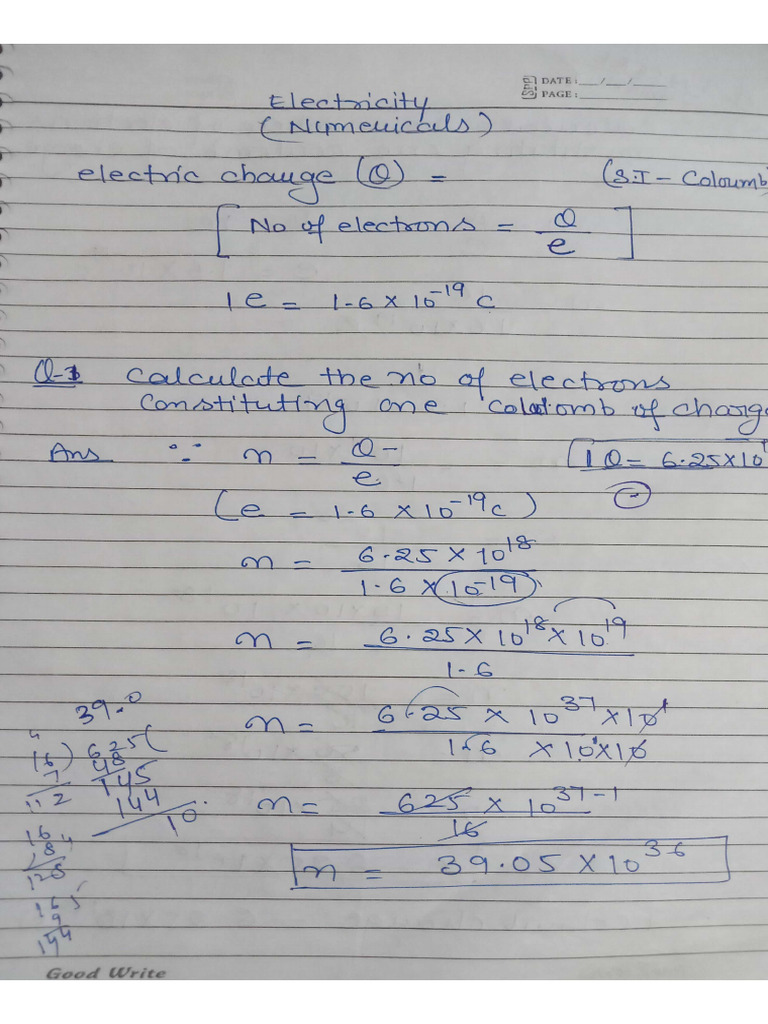 DATE: __/__/__
PAGE: ______
Electricity
(Numericals)
electric charge (Q) = (S.I - Coloumb)
[No of electrons = Q/e]
1e = 1.6 × 10⁻¹⁹ C
Q-1 Calculate the no of electrons
constituting one coloumb of charge
Ans ∵ n = Q/e 1Q = 6.25×10¹
(e = 1.6 × 10⁻¹⁹ C)
n = 6.25 × 10¹⁸ / 1.6 × 10⁻¹⁹
n = 6.25 × 10¹⁸ × 10¹⁹ / 1.6
n = 6.25 × 10³⁷ × 10 / 1.6 × 10 × 10
n = 625 × 10³⁷⁻¹ / 16
n = 39.05 × 10³⁶
39.0
16) 625(
48
145
144
10
16
7
112
16
8
128
16
9
144
Good Write